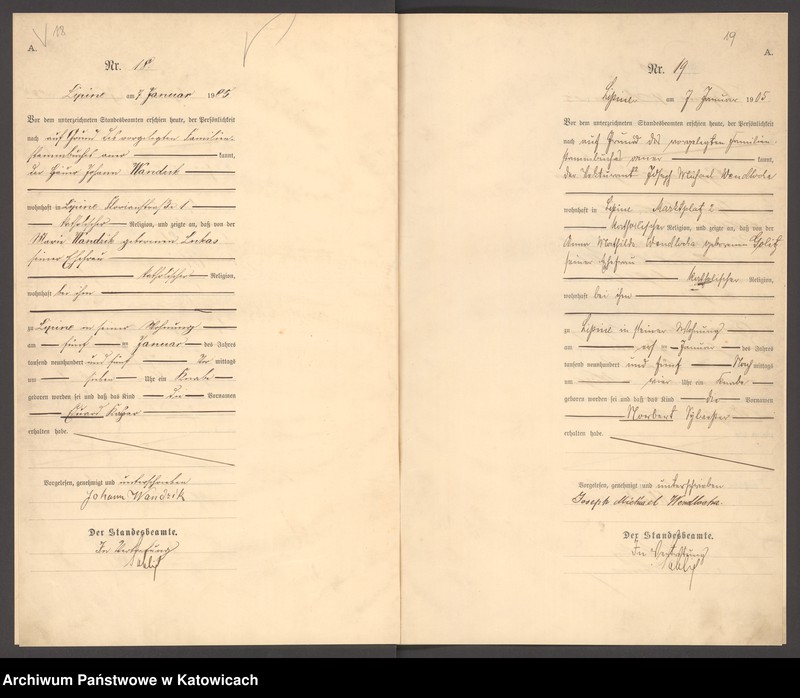 18
A.
Nr. 18
Lipine am 7 Januar 1905
Vor dem unterzeichneten Standesbeamten erschien heute, der Persönlichkeit
nach auf Grund des vorgelegten Familien-
stammbuches aner kannt,
der Johann Wandzik
wohnhaft in Lipine Florianstraße 1
katholischer Religion, und zeigte an, daß von der
Marie Wandzik geborenen Lukas
seiner Ehefrau
katholischer Religion,
wohnhaft bei ihm
zu Lipine in seiner Wohnung
am fünf ten Januar des Jahres
tausend neunhundert und fünf Vor mittags
um sieben Uhr ein Knabe
geboren worden sei und daß das Kind den Vornamen
Eduard
erhalten habe.
Vorgelesen, genehmigt und unterschrieben
Johann Wandzik
Der Standesbeamte.
In Vertretung
19
A.
Nr. 19
Lipine am 7. Januar 1905
Vor dem unterzeichneten Standesbeamten erschien heute, der Persönlichkeit
nach auf Grund des vorgelegten Familien-
stammbuches aner kannt,
der Joseph Michael Wendlocha
wohnhaft in Lipine Marktplatz 2
katholischer Religion, und zeigte an, daß von der
Anna Mathilde Wendlocha geborenen
seiner Ehefrau
katholischer Religion,
wohnhaft bei ihm
zu Lipine in seiner Wohnung
am ersten Januar des Jahres
tausend neunhundert und fünf Nach mittags
um vier Uhr ein Knabe
geboren worden sei und daß das Kind die Vornamen
Norbert Sylvester
erhalten habe.
Vorgelesen, genehmigt und unterschrieben
Joseph Michael Wendlocha
Der Standesbeamte.
In Vertretung
Archiwum Państwowe w Katowicach